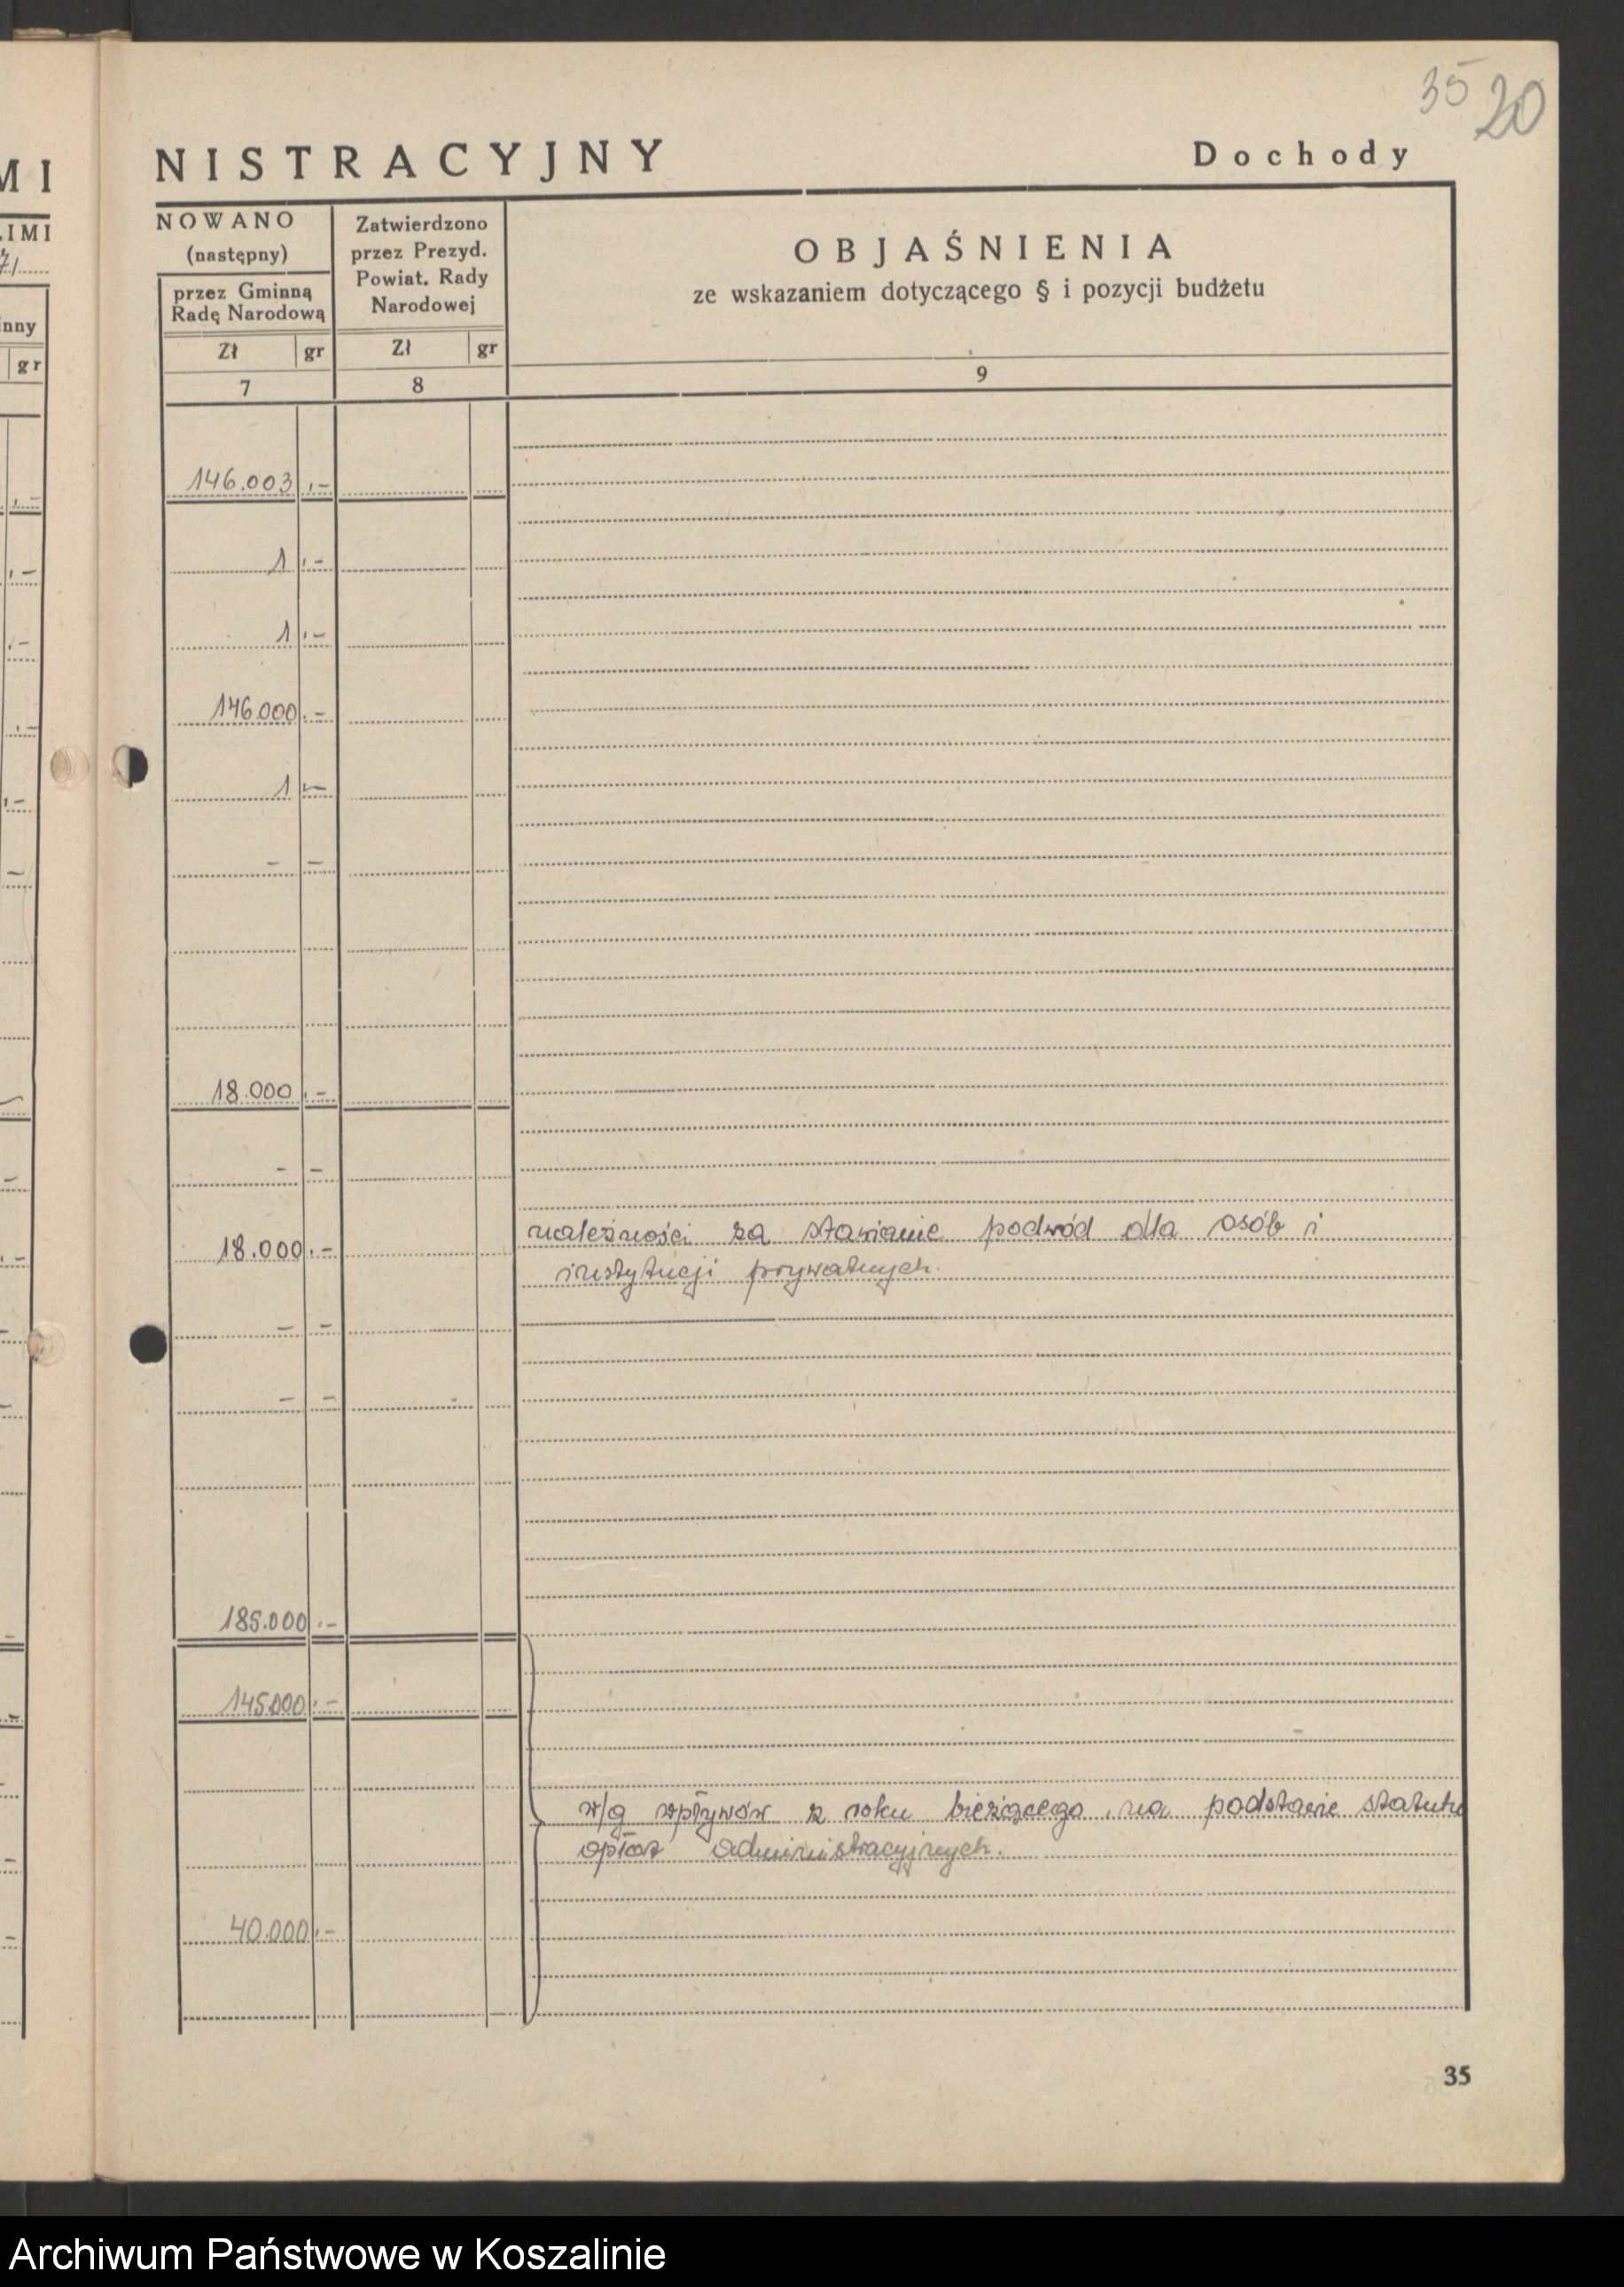 35 20
NISTRACYJNY Dochody
MI
LIMI
inny
gr
NOWANO
(następny)
przez Gminną
Radę Narodową
Zł gr
7
Zatwierdzono
przez Prezyd.
Powiat. Rady
Narodowej
Zł gr
8
OBJAŚNIENIA
ze wskazaniem dotyczącego § i pozycji budżetu
9
146.003 ,-
1 ,-
1 ,-
146.000 ,-
1 ,-
- -
18.000 ,-
- -
należności za stawianie podwód dla osób i
18.000 ,-
instytucji prywatnych.
- -
- -
185.000 ,-
145.000 ,-
w/g wpływów z roku bieżącego, na podstawie statutu
opłat administracyjnych.
40.000 ,-
35
Archiwum Państwowe w Koszalinie